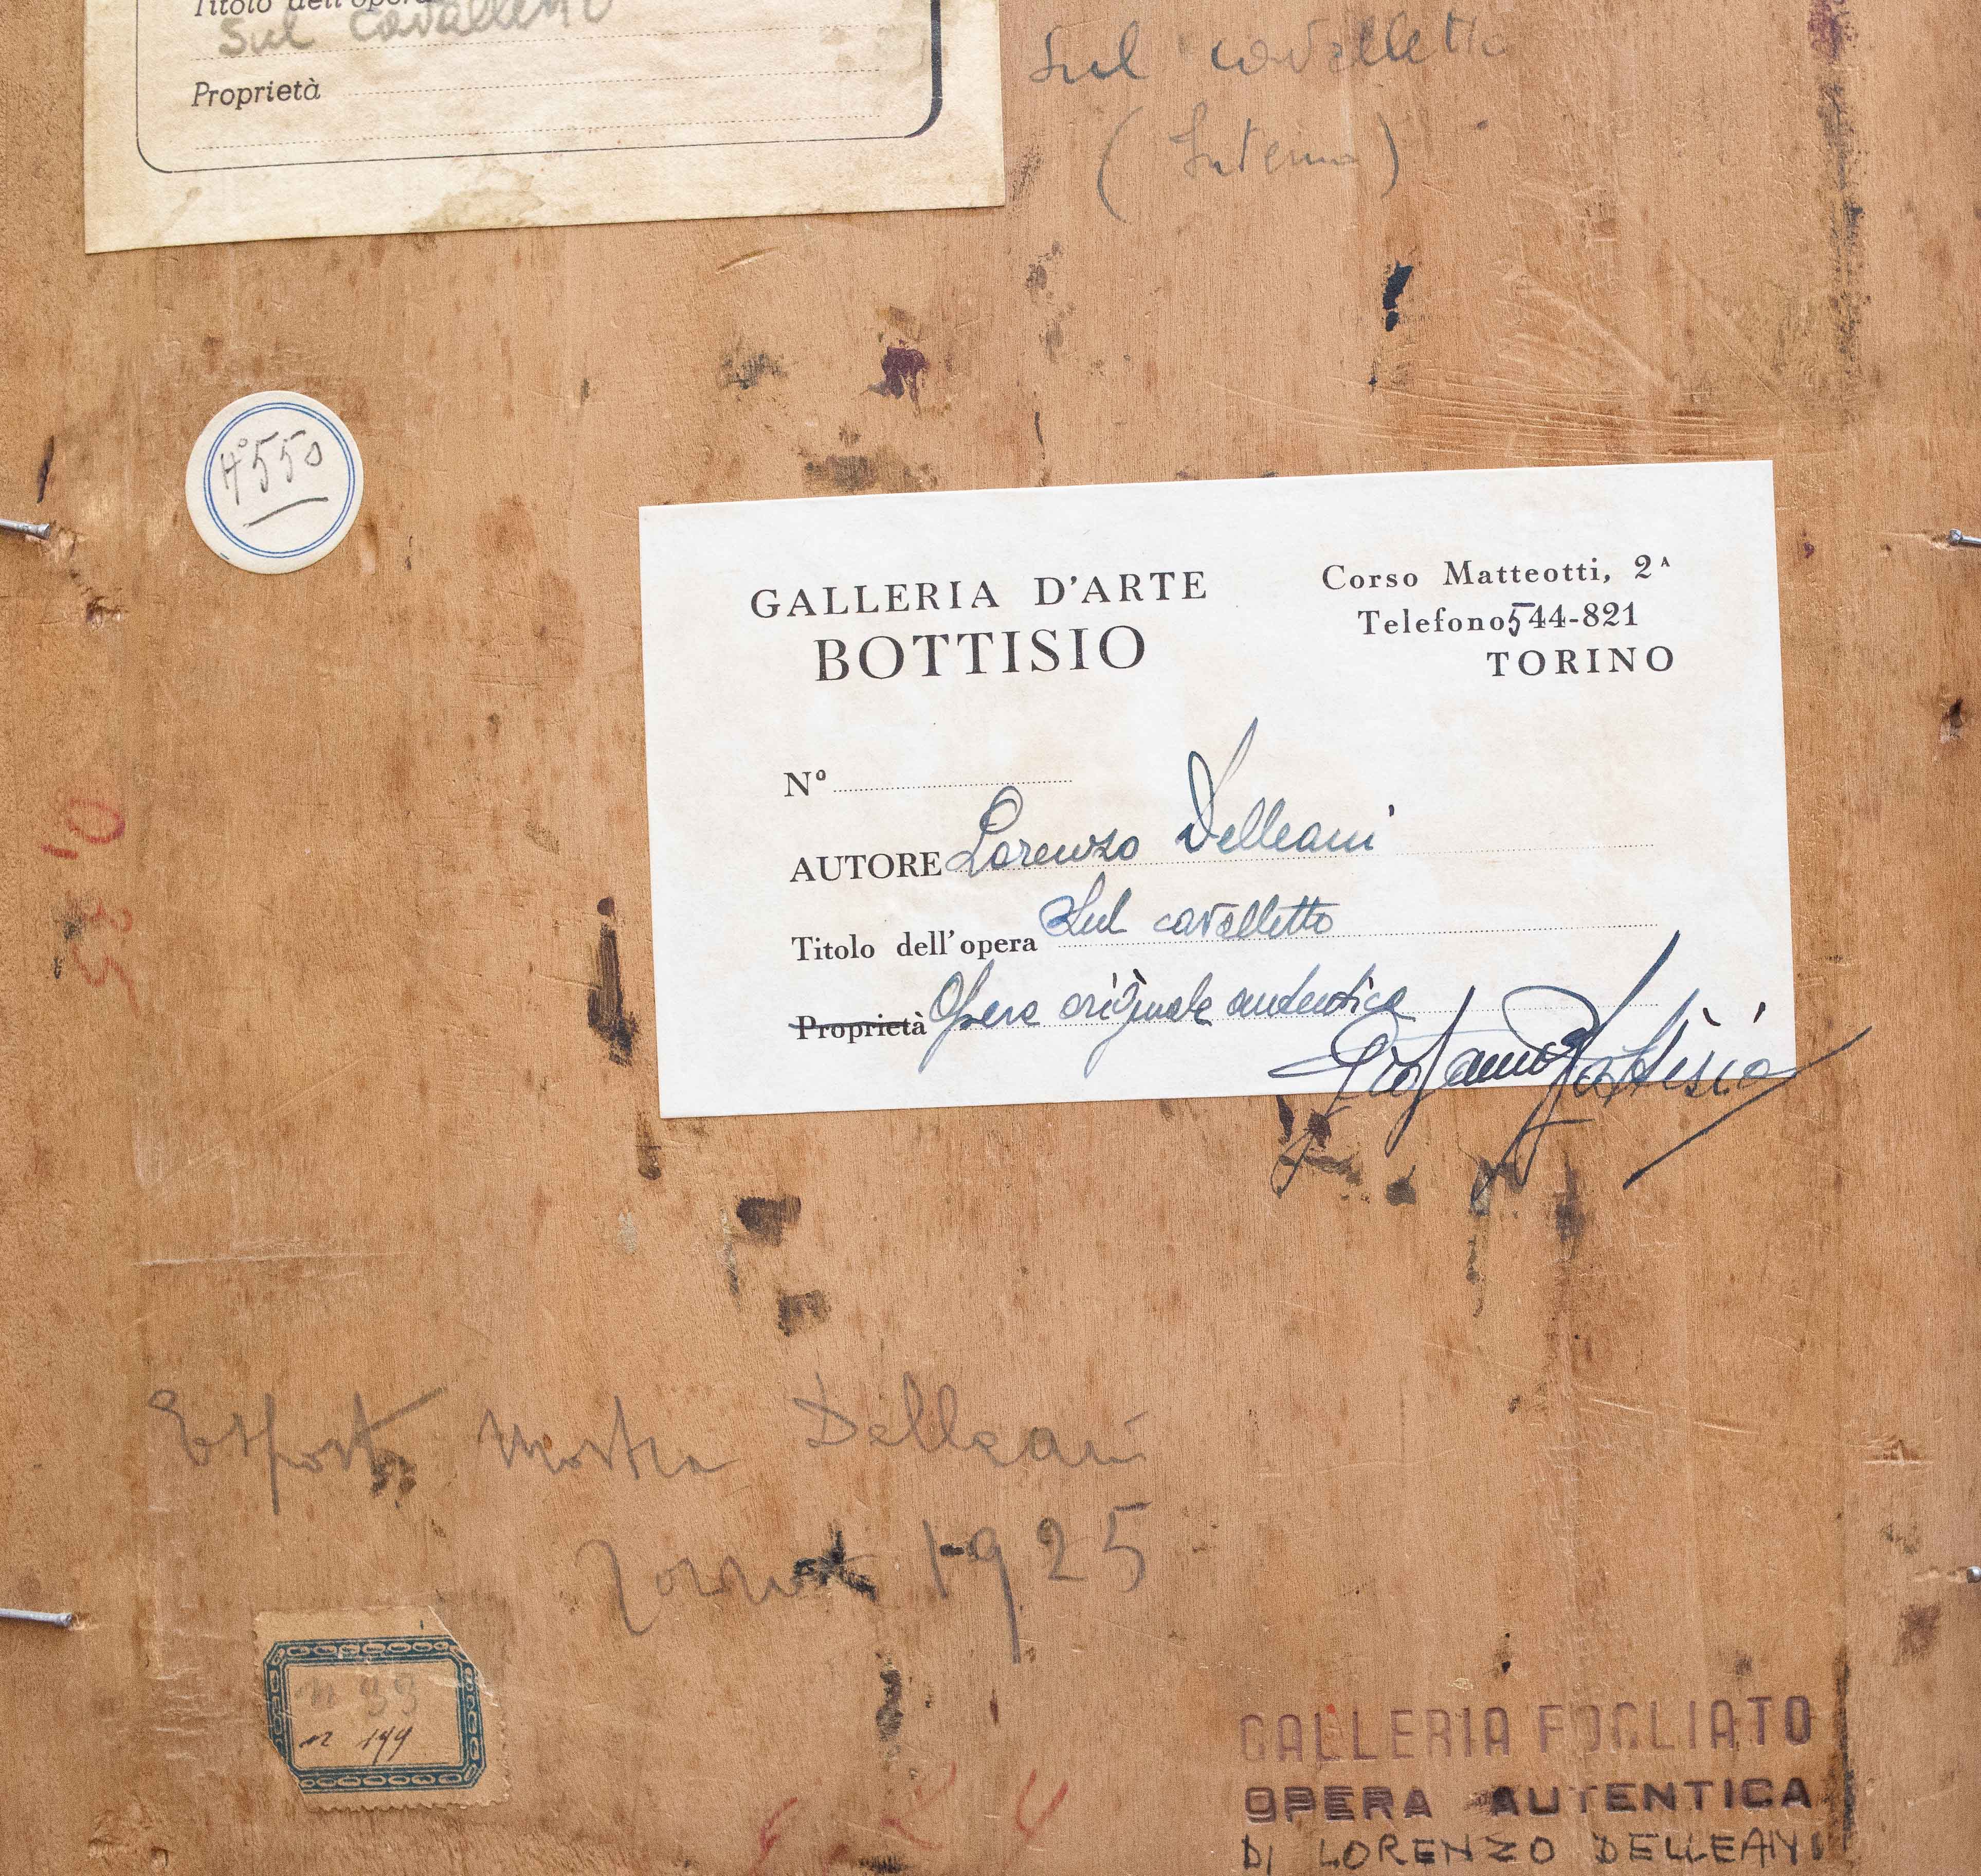 Titolo dell'opera
Sul cavalletto
Proprietà
Sul cavalletto
(Interno)
N° 550
GALLERIA D'ARTE
BOTTISIO
Corso Matteotti, 2ᴬ
Telefono 544-821
TORINO
N°
AUTORE Lorenzo Delleani
Titolo dell'opera Sul cavalletto
Proprietà Opera originale autentica
Bottisio
Esposto Mostra Delleani
Torino 1925
n 199
GALLERIA FOGLIATO
OPERA AUTENTICA
DI LORENZO DELLEANI